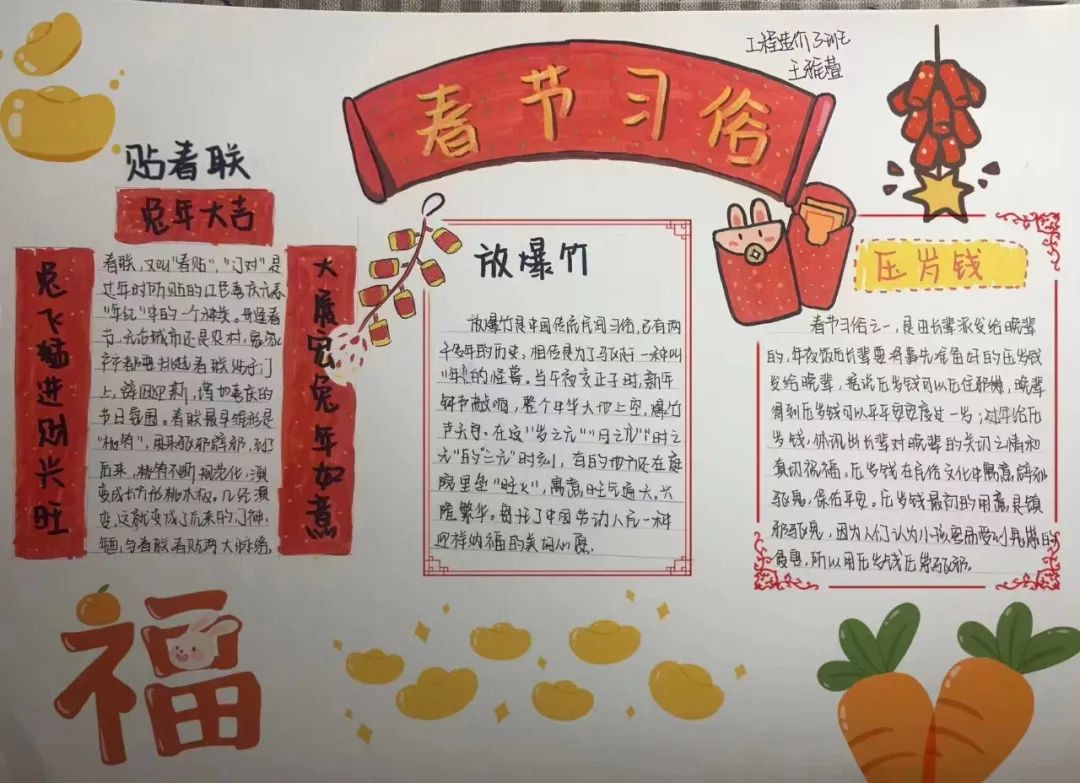 工程造价3班
王雅萱
春节习俗
贴春联
兔年大吉
兔飞猛进财兴旺
大展宏兔年如意
春联,又叫"春贴","门对"是
过年时所贴的红色喜庆元素
"年红"中的一个种类。每逢春
节,无论城市还是农村,
都要挑选春联贴于门
上,辞旧迎新,增加喜庆的
节日氛围。春联最早雏形是
"桃符",用来驱邪辟邪,到了
后来,桃符不断规范化,演
变成长方形桃木板。几经演
变,这就变成了后来的门神,
与春联春贴两大
放爆竹
放爆竹是中国传统民间习俗,已有两
千多年的历史。相传是为了驱赶一种叫
"年"的怪兽。当午夜交正子时,新年
钟声敲响,整个中华大地上空,爆竹
声天。在这"岁之元""月之元""时之
元"的"三元"时刻,有的地方还在庭
院里垒"旺火",寓意旺气通天,兴
隆繁华。寄托了中国劳动人民一种
迎祥纳福的美词心愿。
压岁钱
春节习俗之一,是由长辈派发给晚辈
的,年夜饭后长辈要将事先准备好的压岁钱
发给晚辈,据说压岁钱可以压住邪祟,晚辈
得到压岁钱可以平平安安度过一岁;过年给压
岁钱,体现出长辈对晚辈的关切之情和
真切祝福。压岁钱在民俗文化中寓意辟邪
驱鬼,保佑平安。压岁钱最初的用意是镇
邪驱鬼,因为人们认为小孩容易受到鬼祟的
侵害,所以用压岁钱压祟驱邪。
福